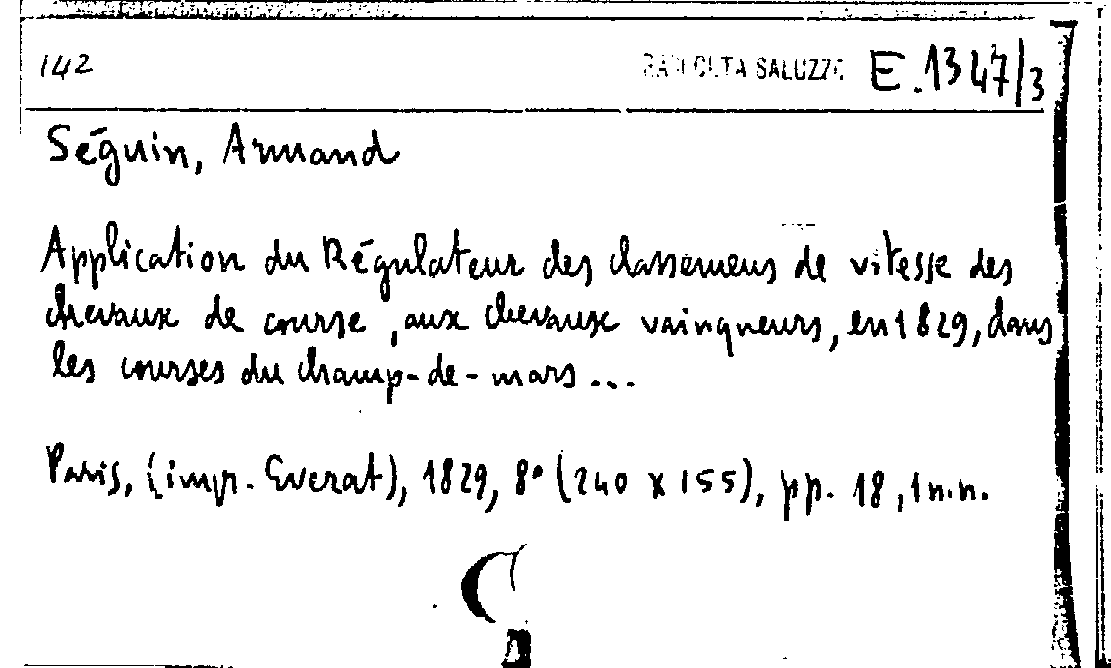 142 RACCOLTA SALUZZO E.1347/3
Séguin, Armand
Application du Régulateur des classemens de vitesse des
chevaux de course, aux chevaux vainqueurs, en 1829, dans
les courses du champ-de-mars...
Paris, (impr. Everat), 1829, 8° (240 x 155), pp. 18, 1 n.n.